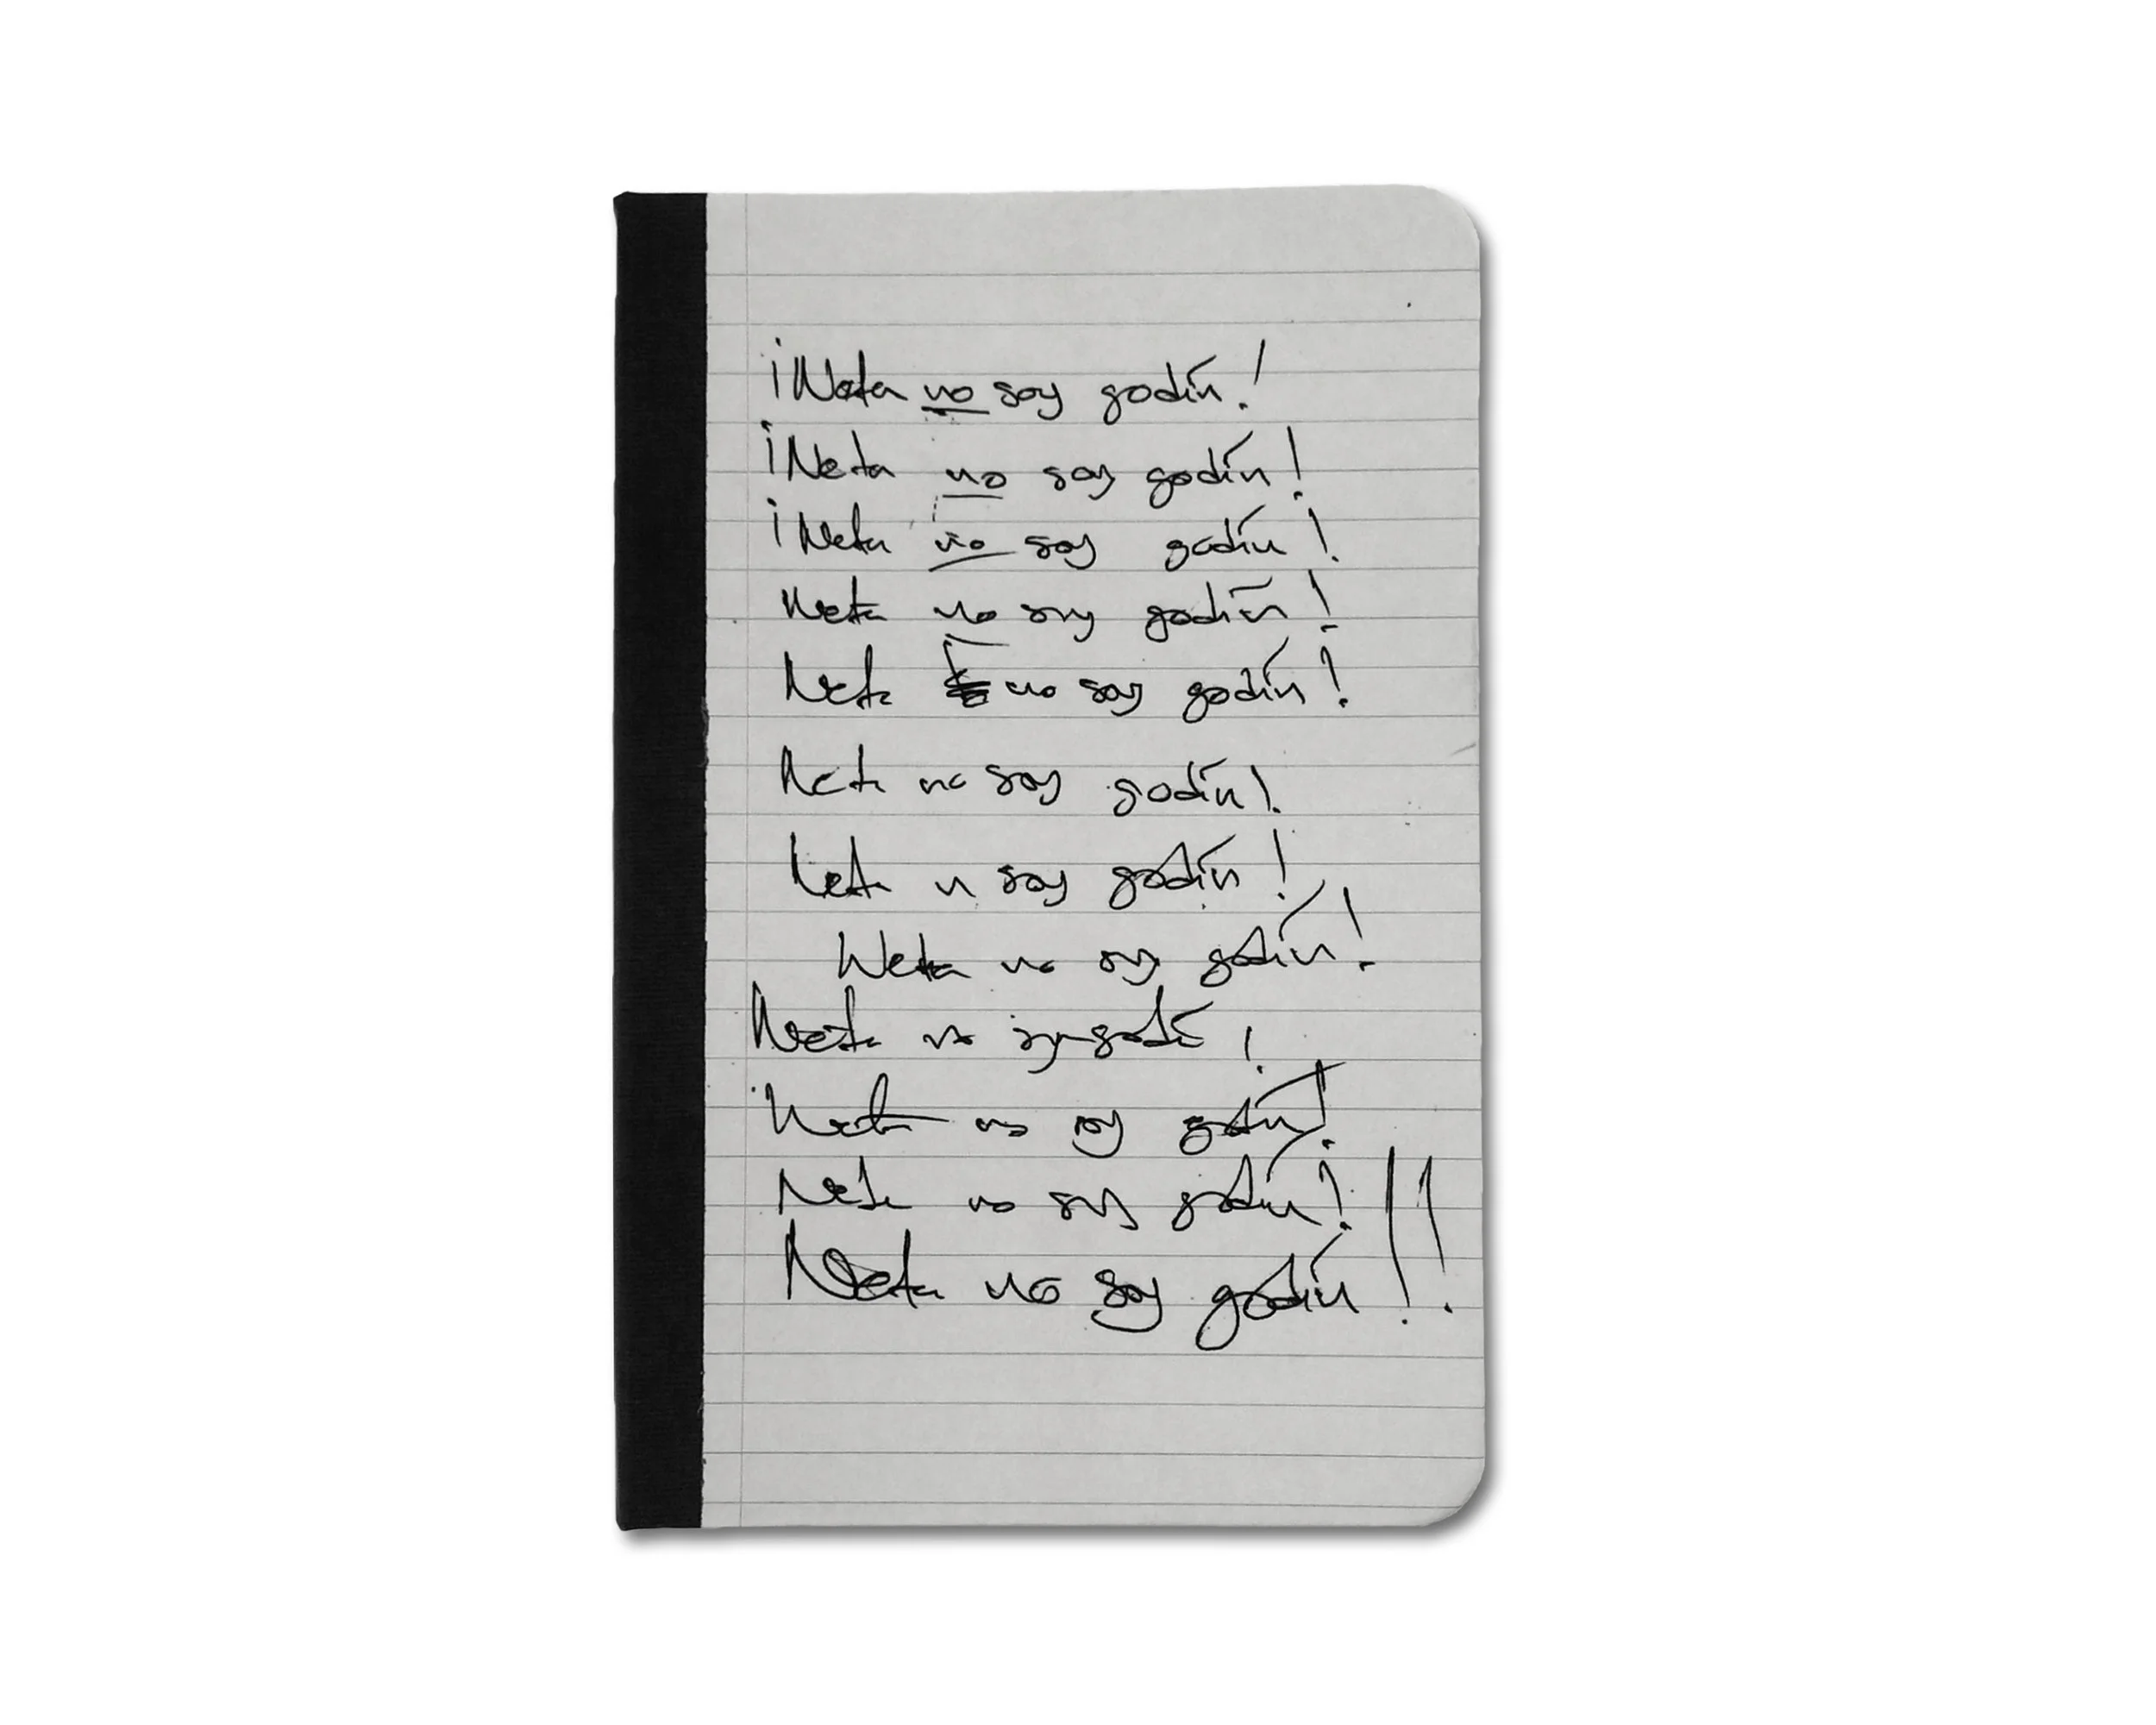 ¡Neta no soy godín!
¡Neta no soy godín!
¡Neta no soy godín!
Neta no soy godín!
Neta no soy godín!
Neta no soy godín!
Neta n soy godín!
Neta no soy godín!
Neta no soy godí!
Neta no soy godín!
Neta no soy godín!
Neta no soy godín!!